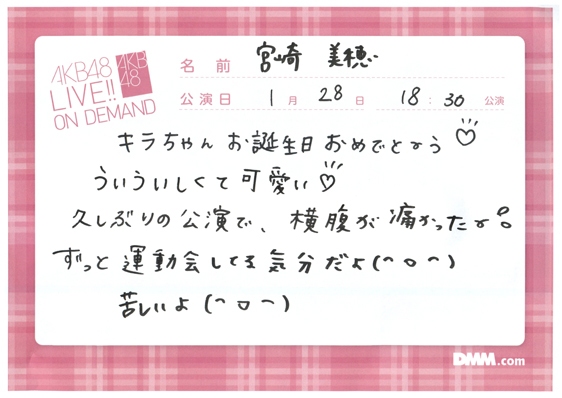 AKB48
LIVE!!
ON DEMAND
AKB
48
名前 宮崎 美穂
公演日 1月 28日 18:30 公演
キラちゃん お誕生日 おめでとう♡
ういういしくて可愛い♡
久しぶりの公演で、横腹が痛かったよ
ずっと運動会してる気分だよ(^o^)
苦しいよ(^o^)
DMM.com